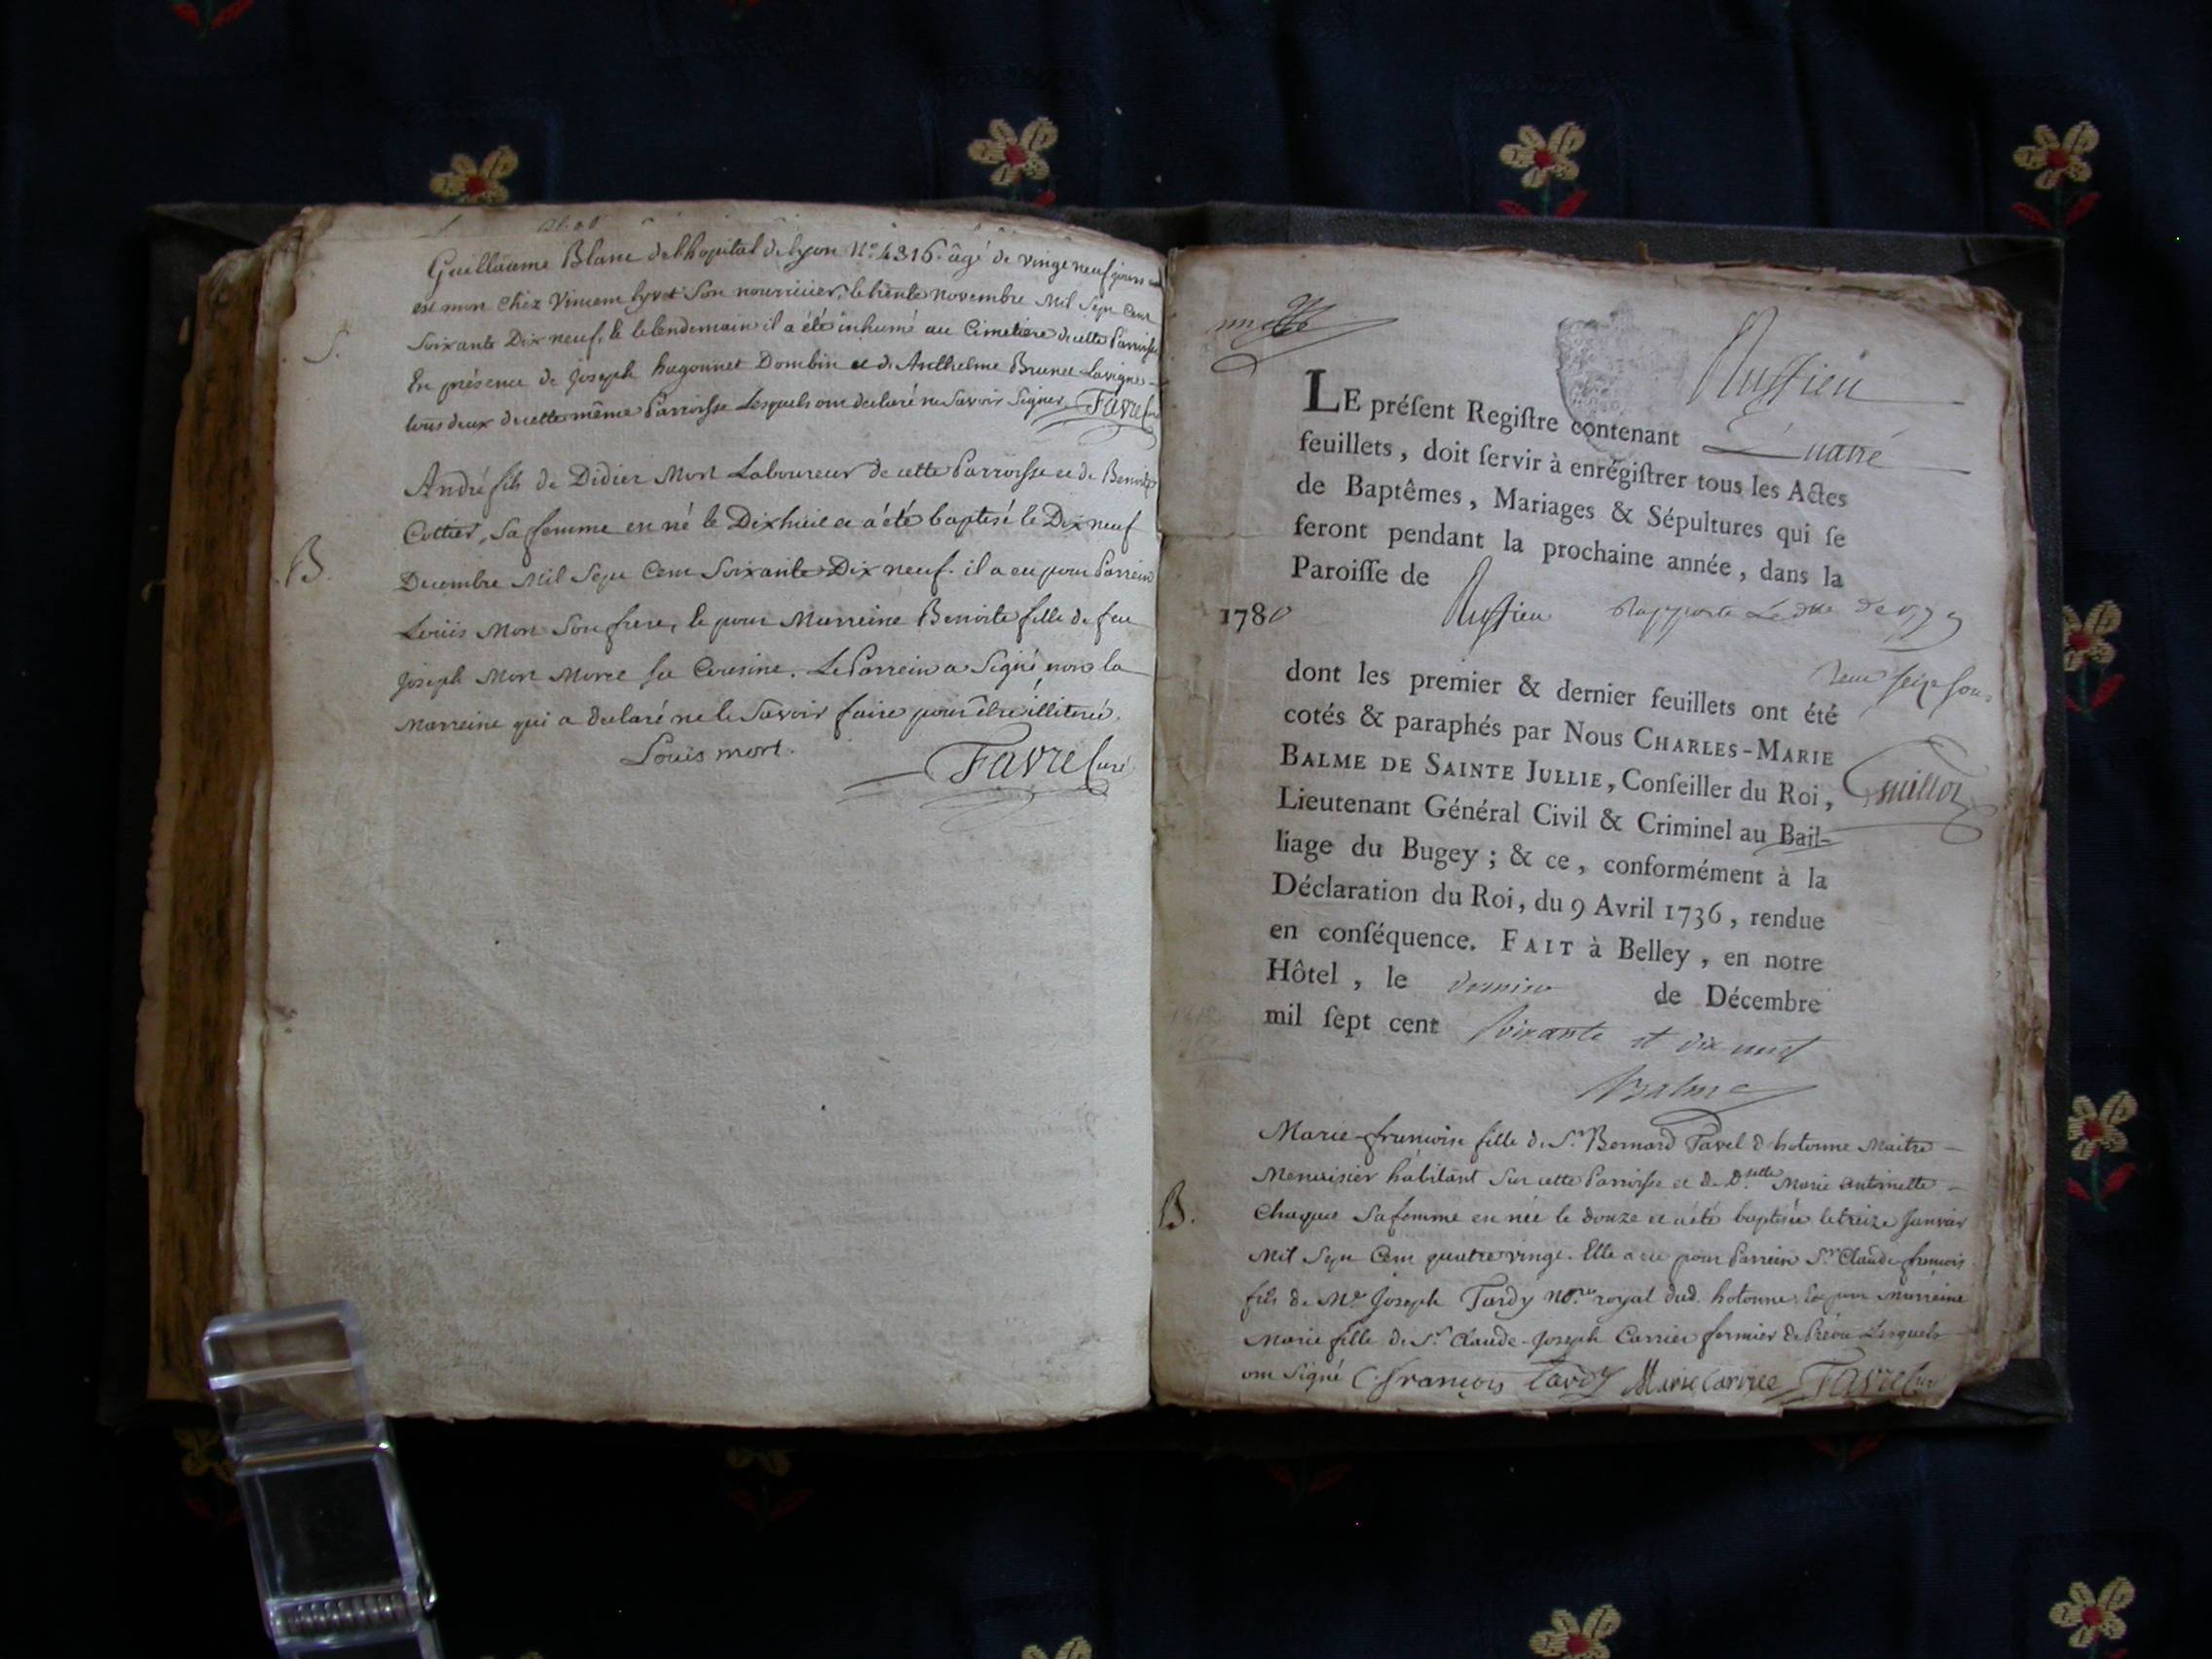 Guillaume Blanc de l'hopital de lyon N.º 4316. âgé de vingt neuf jours
est mort chez Vincent son nourricier, le trente novembre Mil Sept Cent
S.
Soixante Dix neuf, & le lendemain il a été inhumé au Cimetiere de cette Parroisse
En présence de Joseph hugonnet Dombin et de Anthelme Brunet-Lavigne
tous deux de cette même Parroisse Lesquels ont declaré ne Savoir Signer. Favre Curé
André fils de Didier Mort Laboureur de cette Parroisse et de Benoite
Cottier, Sa femme est né le Dixhuit et a été baptisé le Dix neuf
B.
Decembre Mil Sept Cent Soixante-Dix neuf. il a eu pour Parrein
Loüis Mort Son frere, & pour Marreine Benoite fille de feu
Joseph Mort Morel sa Cousine. Le Parrein a Signé, non la
Marreine qui a declaré ne le Savoir faire pour être illiterée.
Louis mort.
Favre Curé
Ruffieu
LE préſent Regiſtre contenant Quatre
feuillets, doit ſervir à enrégiſtrer tous les Actes
de Baptêmes, Mariages & Sépultures qui ſe
feront pendant la prochaine année, dans la
Paroiſſe de Ruffieu
1780
Rapporté Le de 1779
seize sous
dont les premier & dernier feuillets ont été
cotés & paraphés par Nous CHARLES-MARIE
BALME DE SAINTE JULLIE, Conſeiller du Roi,
Guillot
Lieutenant Général Civil & Criminel au Bail-
liage du Bugey; & ce, conformément à la
Déclaration du Roi, du 9 Avril 1736, rendue
en conſéquence. FAIT à Belley, en notre
Hôtel, le dernier de Décembre
mil ſept cent soixante et dix neuf
Balme
Marie-francoise fille de S.r Bernard Favel d'hotonne Maitre
Menuisier habitant Sur cette Parroisse et de D.selle Marie antoinette
B.
Sa femme est née le douze et a été baptisée le treize Janvier
Mil Sept Cent quatre vingt. Elle a eu pour Parrein S.r Claude-francois
fils de M.e Joseph Tardy No.re royal dud. hotonne. Et pour Marreine
Marie fille de S.r Claude-Joseph Carrier fermier de Lesquels
ont Signé C. françois tardy Marie Carriee Favre Curé